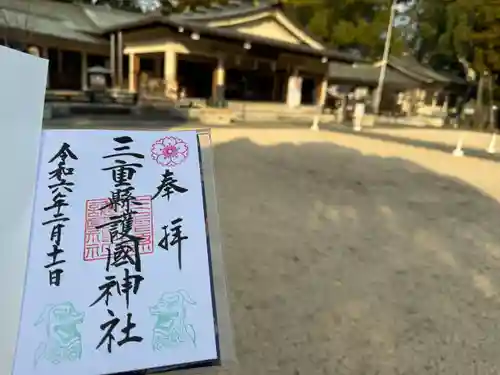 奉拝
三重縣護國神社
令和六年二月十日